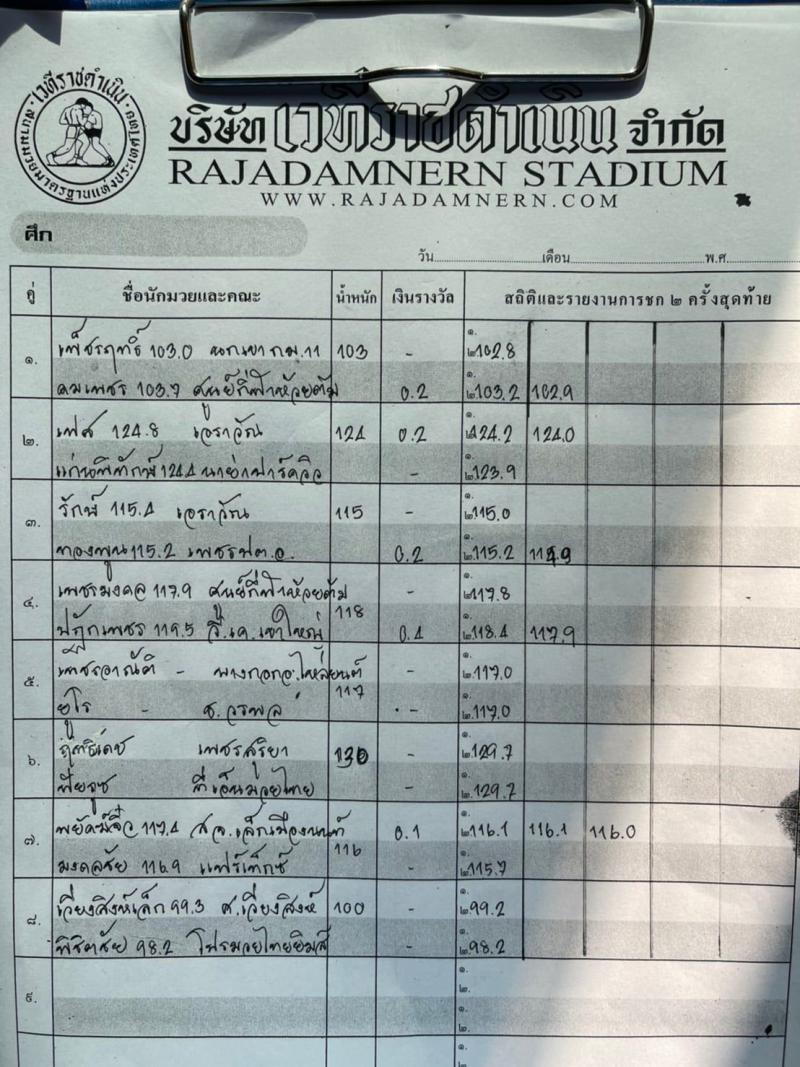 เวทีราชดำเนิน
สนามมวยมาตรฐานแห่งประเทศไทย
บริษัท เวทีราชดำเนิน จำกัด
RAJADAMNERN STADIUM
WWW.RAJADAMNERN.COM
ศึก
วัน เดือน พ.ศ.
คู่ ชื่อนักมวยและคณะ น้ำหนัก เงินรางวัล สถิติและรายงานการชก ๒ ครั้งสุดท้าย
๑. เพ็ชรฤทธิ์ 103.0 นกเขา กม.11 103 - ๑. ๒. 102.8
คมเพชร 103.7 ศูนย์กีฬาห้วยต้ม 0.2 ๑. ๒. 103.2 102.9
๒. เฟส 124.8 เอราวัณ 124 0.2 ๑. ๒. 124.2 124.0
แก่นพิทักษ์ 124.4 นายำฟาร์ควิว - ๑. ๒. 123.9
๓. รักษ์ 115.4 เอราวัณ 115 - ๑. ๒. 115.0
ทองพูน 115.2 เพชรปต.อ. 0.2 ๑. ๒. 115.2 114.9
๔. เพชรมงคล 117.9 ศูนย์กีฬาห้วยต้ม 118 - ๑. ๒. 117.8
119.5 วี.เค.เขาใหญ่ 0.4 ๑. ๒. 118.4 117.9
๕. เพ็ชรอาณัติ - 117 - ๑. ๒. 117.0
ยูโร - ช.วรพล - ๑. ๒. 117.0
๖. ฤทธิเดช เพชรสุริยา 130 - ๑. ๒. 129.7
ทีเอ็นมวยไทย - ๑. ๒. 129.7
๗. พยัคฆ์จิ๋ว 117.4 ส.จ.เล็กเมืองนนท์ 116 0.1 ๑. ๒. 116.1 116.1 116.0
มงคลชัย 116.9 แฟร์เท็กซ์ - ๑. ๒. 115.7
๘. เวียงสิงห์เล็ก 99.3 ศ.เวียงสิงห์ 100 - ๑. ๒. 99.2
พิชิตชัย 98.2 โปรมวยไทยยิมส์ - ๑. ๒. 98.2
๙. ๑. ๒.
๑. ๒.
๑. ๒.